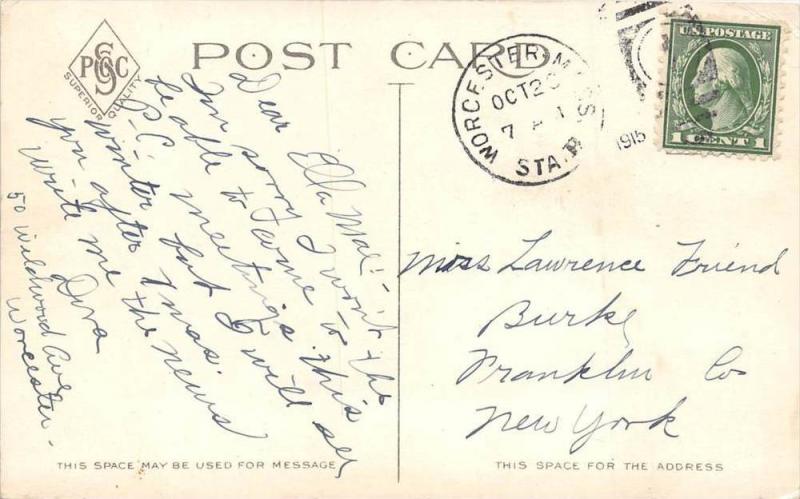 POST CARD
S
P C
S
SUPERIOR QUALITY
WORCESTER, MASS.
OCT 20
7
STA. A
1915
U.S. POSTAGE
1 CENT 1
Dear Ella Mae! -
I'm sorry I won't
be able to come to the
P-C meetings this
winter but I will see
you after Xmas.
Write me the news
Diva
50 Wildwood Ave
Worcester.
Miss Lawrence Friend
Burke
Franklin Co
New York
THIS SPACE MAY BE USED FOR MESSAGE
THIS SPACE FOR THE ADDRESS